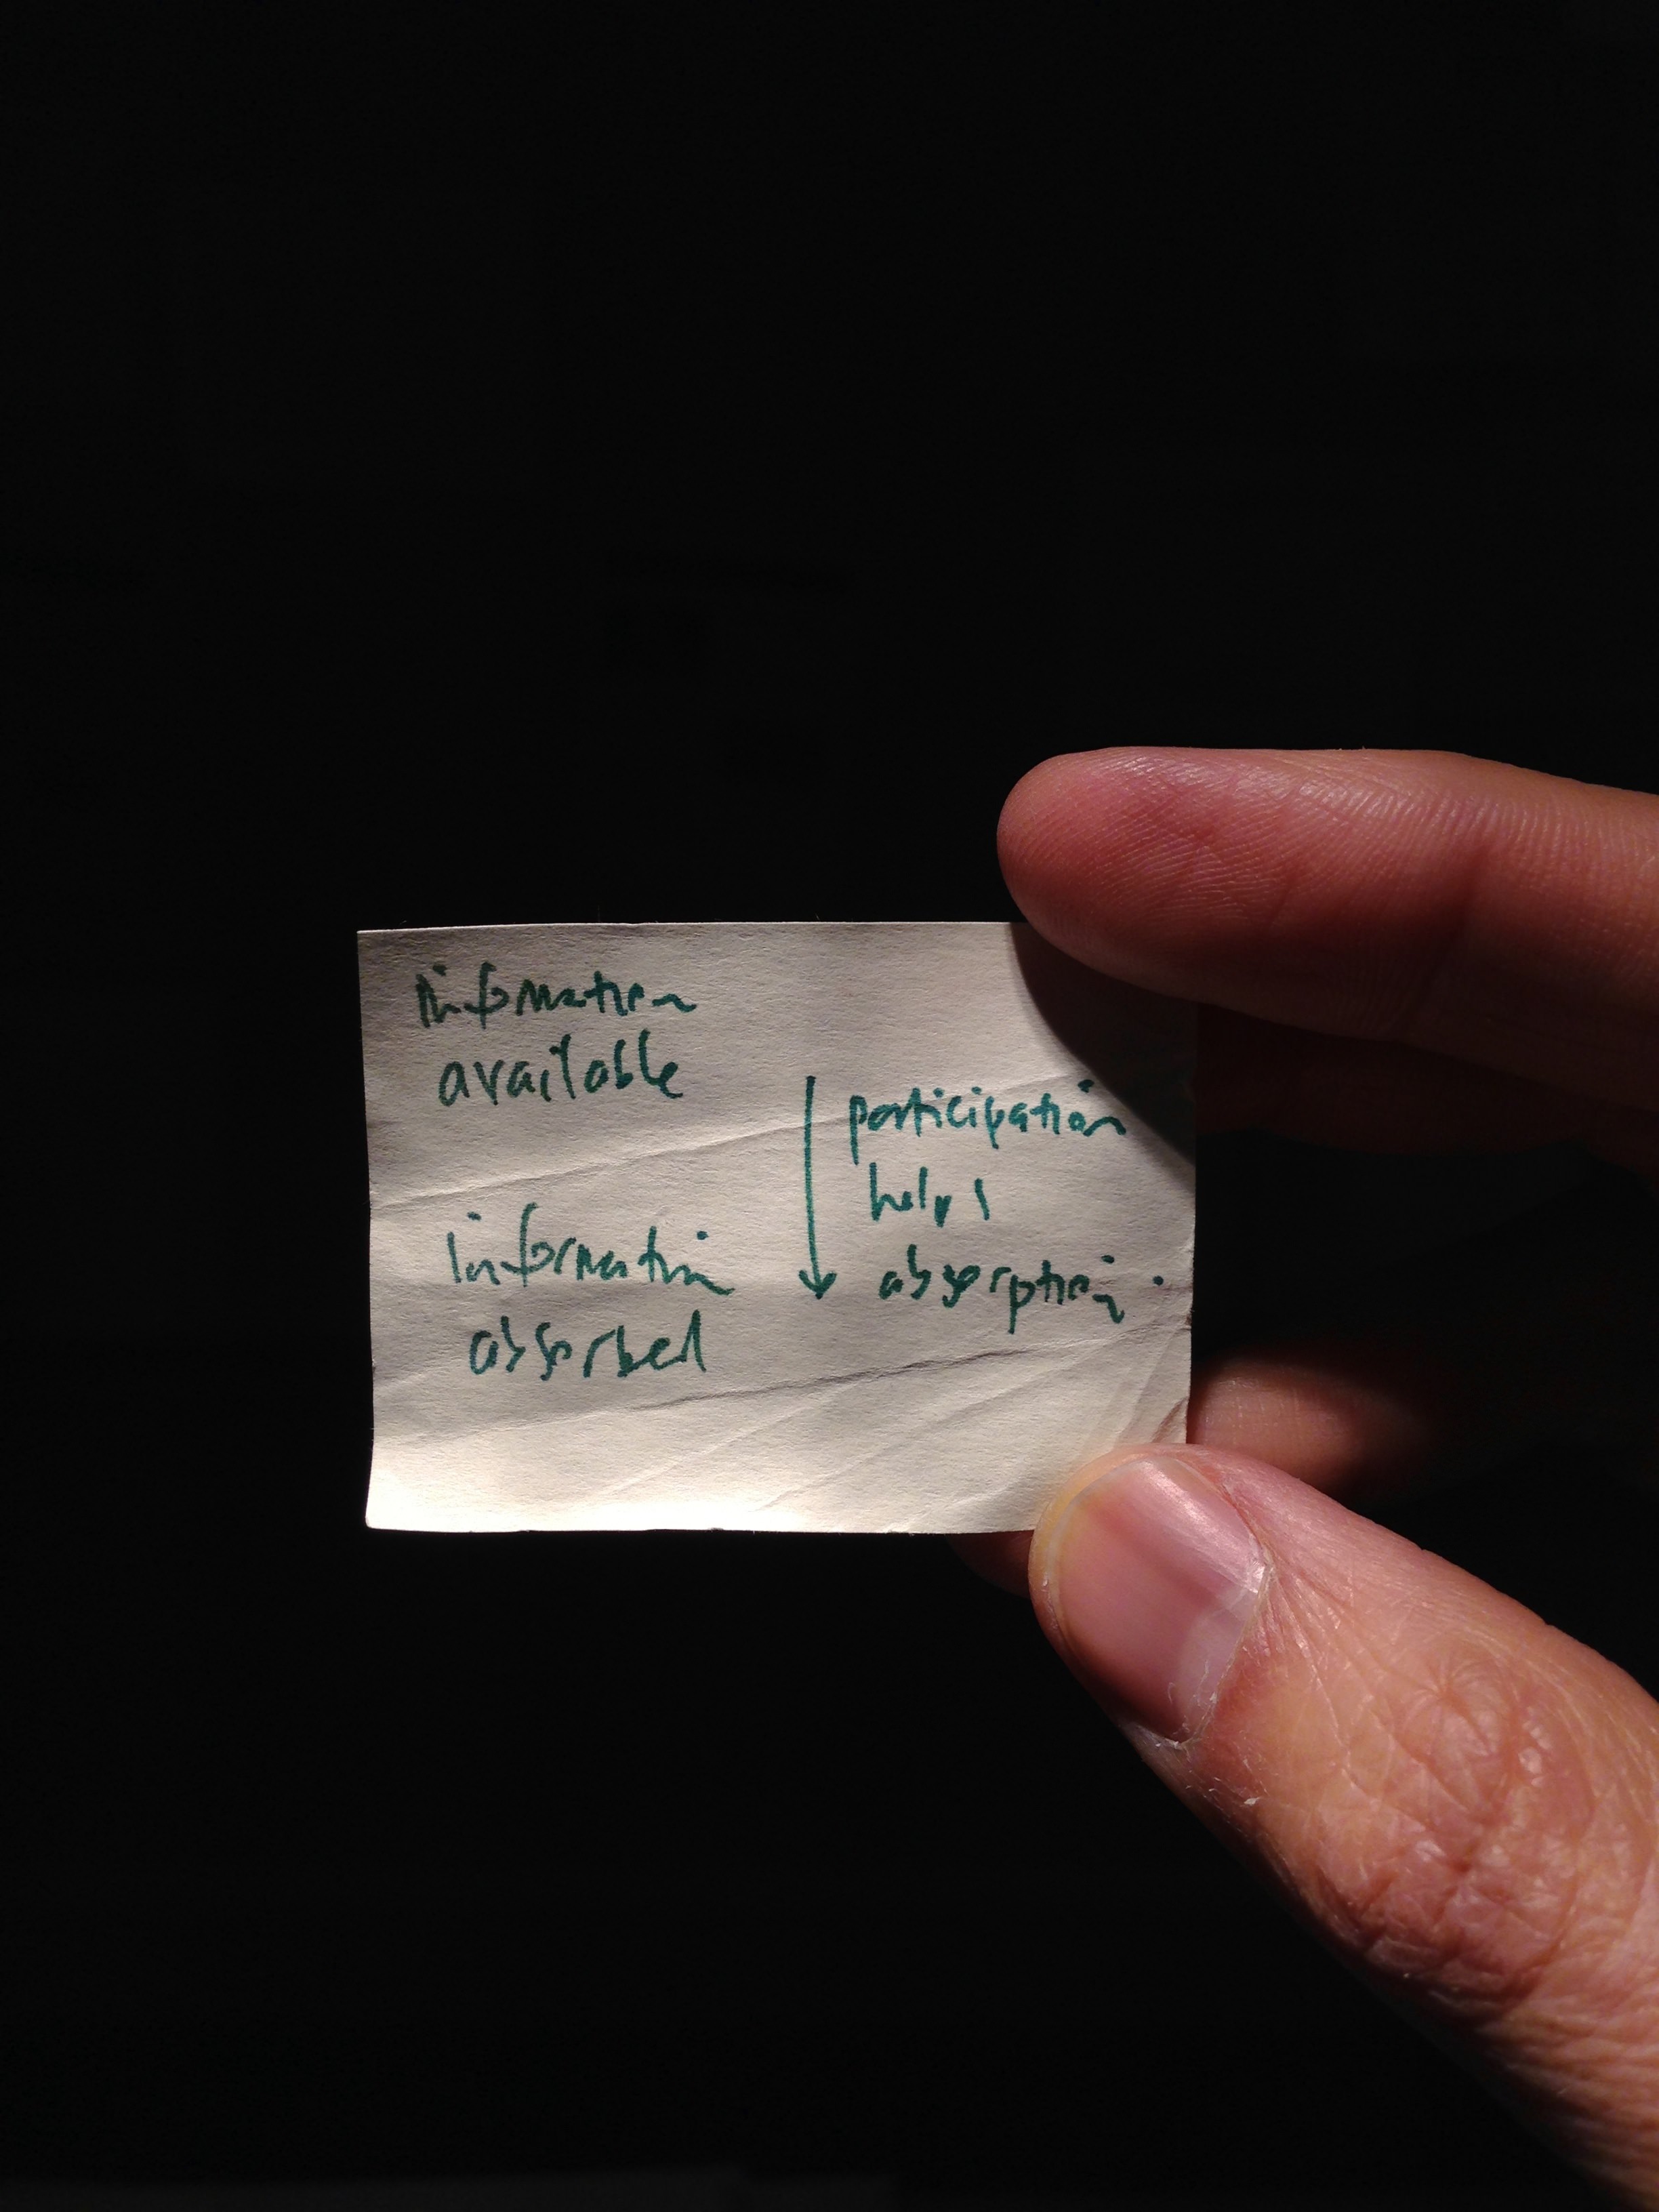 information
available
information
absorbed
↓
participation
helps
absorption.